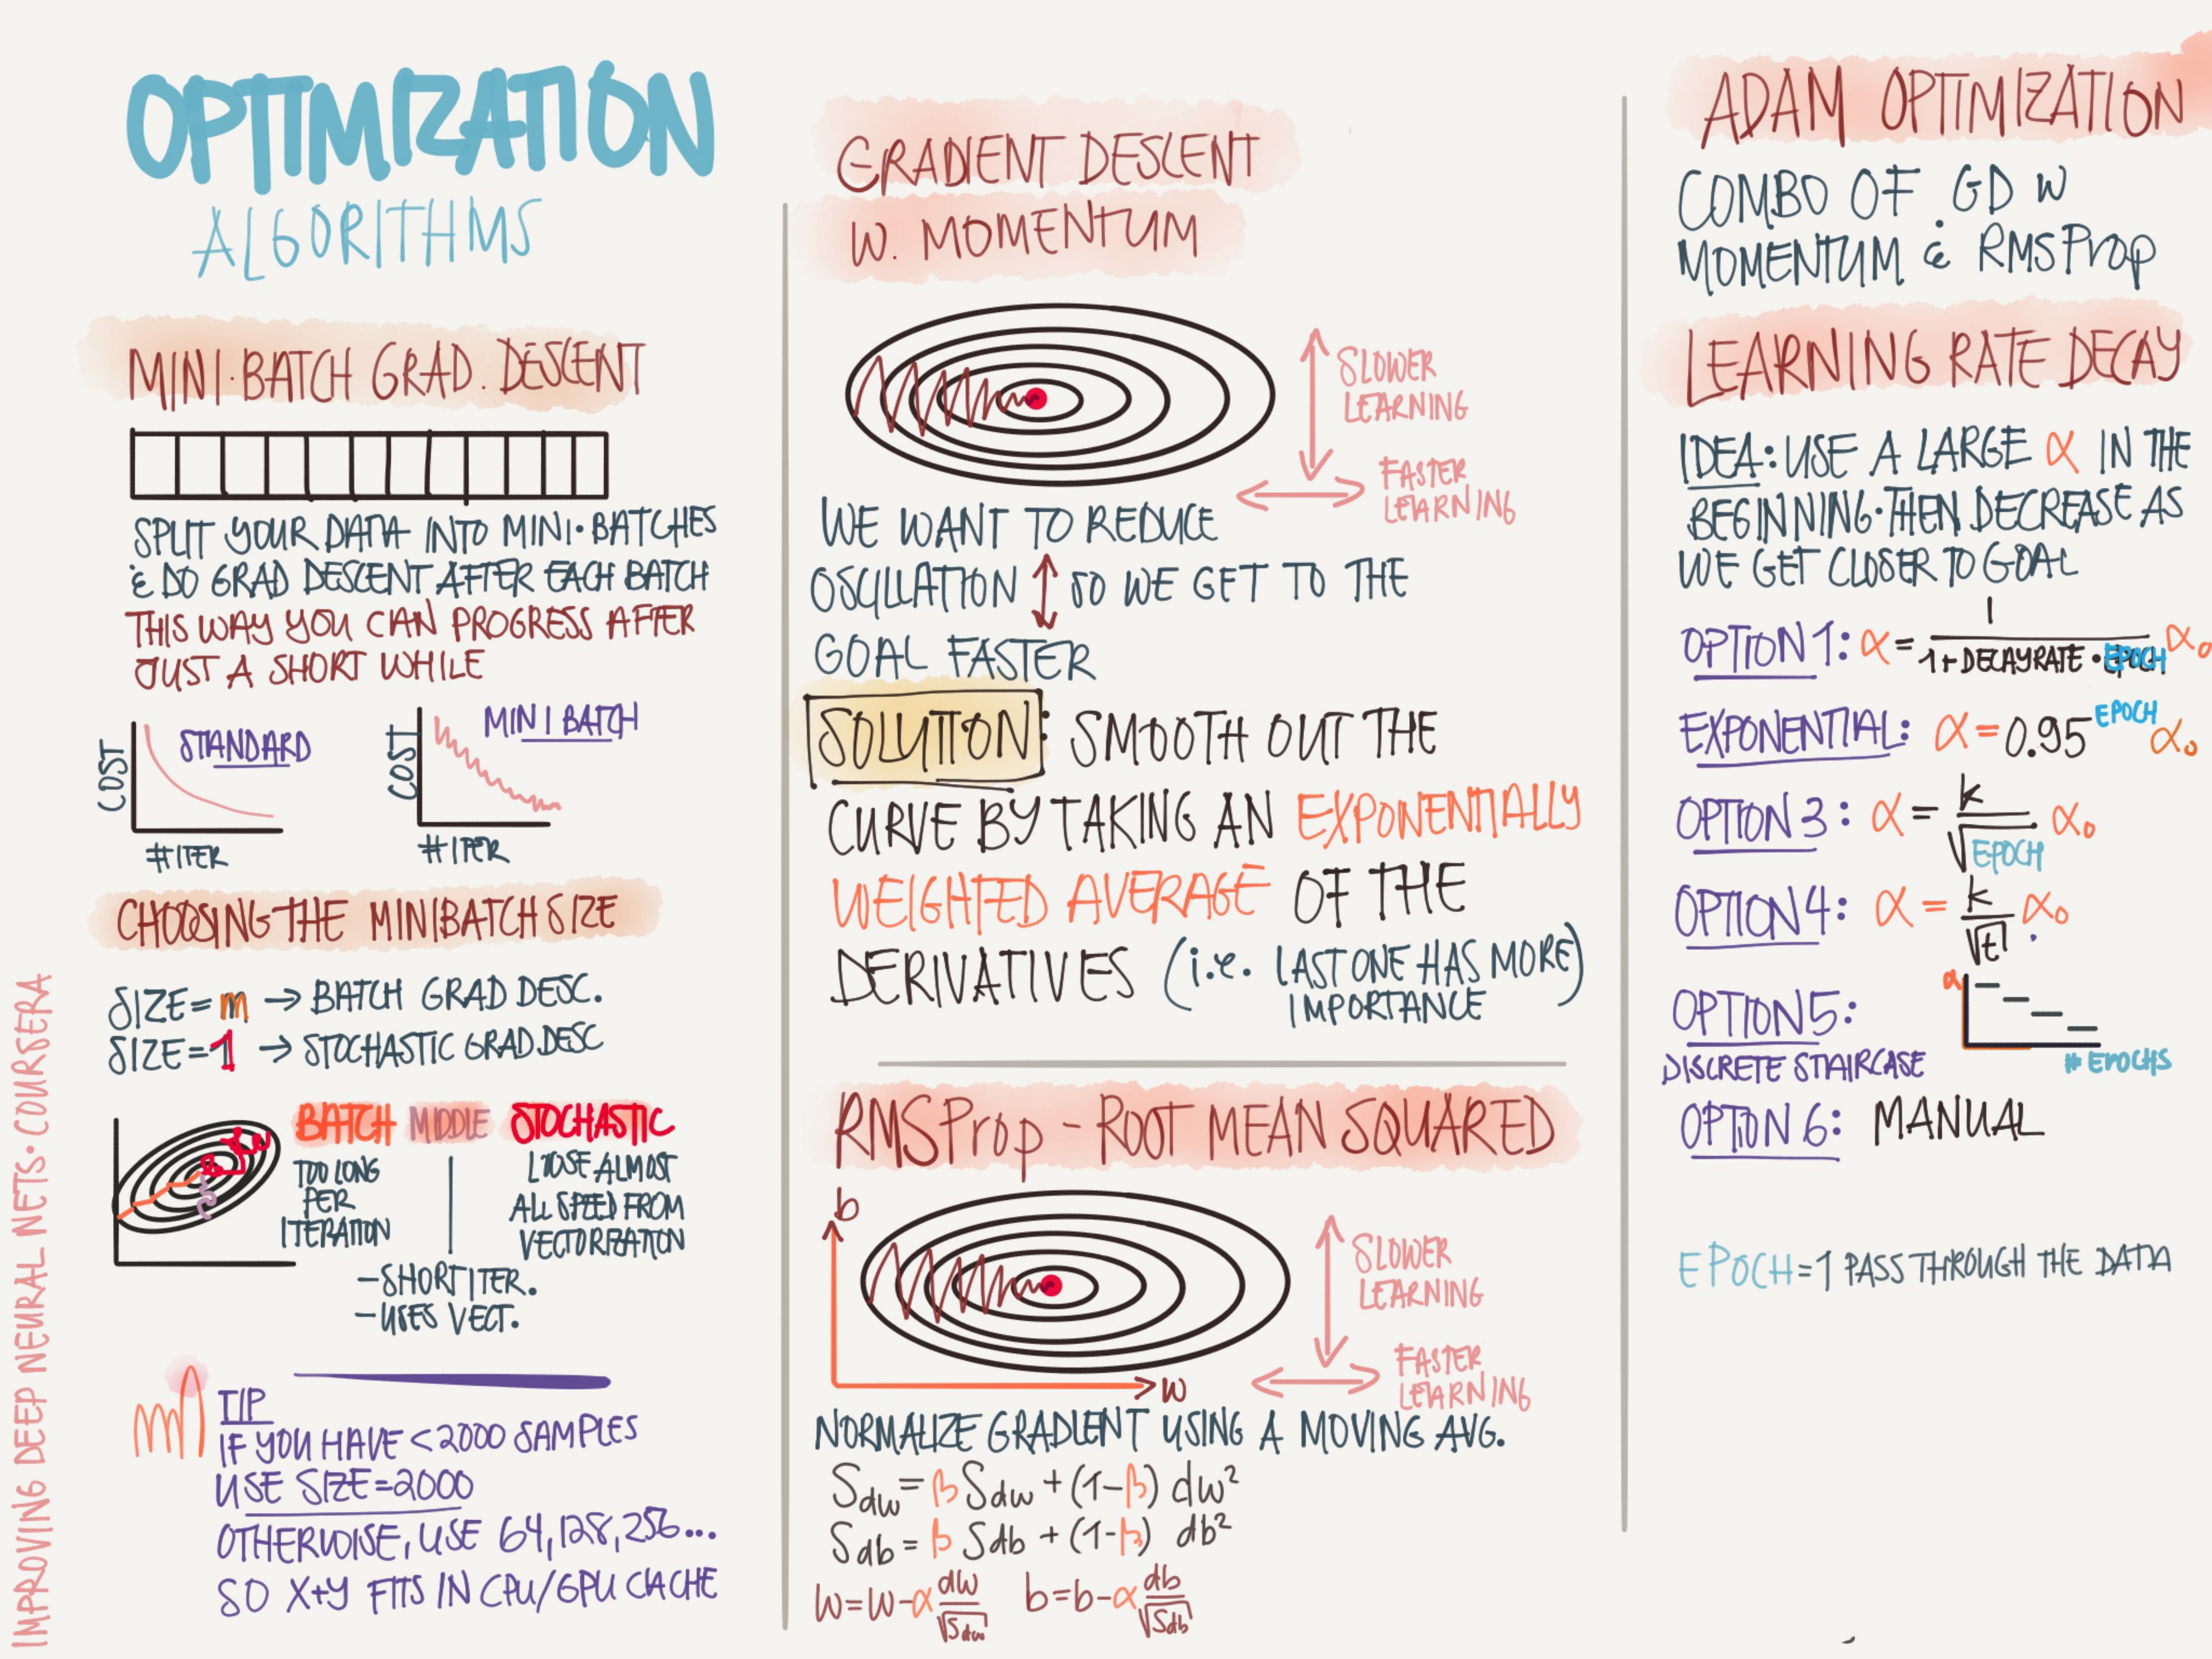 OPTIMIZATION
ALGORITHMS
MINI·BATCH GRAD. DESCENT
SPLIT YOUR DATA INTO MINI·BATCHES
& DO GRAD DESCENT AFTER EACH BATCH
THIS WAY YOU CAN PROGRESS AFTER
JUST A SHORT WHILE
COST
STANDARD
#ITER
COST
MINI BATCH
#ITER
CHOOSING THE MINIBATCH SIZE
SIZE=m → BATCH GRAD DESC.
SIZE=1 → STOCHASTIC GRAD DESC
BATCH MIDDLE STOCHASTIC
TOO LONG
PER
ITERATION
LOOSE ALMOST
ALL SPEED FROM
VECTORIZATION
-SHORT ITER.
-USES VECT.
TIP
IF YOU HAVE <2000 SAMPLES
USE SIZE=2000
OTHERWISE, USE 64,128,256...
SO X+Y FITS IN CPU/GPU CACHE
IMPROVING DEEP NEURAL NETS·COURSERA
GRADIENT DESCENT
W. MOMENTUM
SLOWER
LEARNING
FASTER
LEARNING
WE WANT TO REDUCE
OSCILLATION ↕ SO WE GET TO THE
GOAL FASTER
SOLUTION: SMOOTH OUT THE
CURVE BY TAKING AN EXPONENTIALLY
WEIGHTED AVERAGE OF THE
DERIVATIVES (i.e. LAST ONE HAS MORE)
IMPORTANCE
RMSProp - ROOT MEAN SQUARED
b
w
SLOWER
LEARNING
FASTER
LEARNING
NORMALIZE GRADIENT USING A MOVING AVG.
Sdw = β Sdw + (1-β) dw²
Sdb = β Sdb + (1-β) db²
w=w-α dw/√Sdw b=b-α db/√Sdb
ADAM OPTIMIZATION
COMBO OF GD W
MOMENTUM & RMSProp
LEARNING RATE DECAY
IDEA: USE A LARGE α IN THE
BEGINNING·THEN DECREASE AS
WE GET CLOSER TO GOAL
OPTION 1: α = 1/(1+DECAYRATE·EPOCH) α₀
EXPONENTIAL: α = 0.95^EPOCH α₀
OPTION 3: α = k/√EPOCH α₀
OPTION 4: α = k/√t α₀
OPTION 5:
DISCRETE STAIRCASE
α
# EPOCHS
OPTION 6: MANUAL
EPOCH=1 PASS THROUGH THE DATA